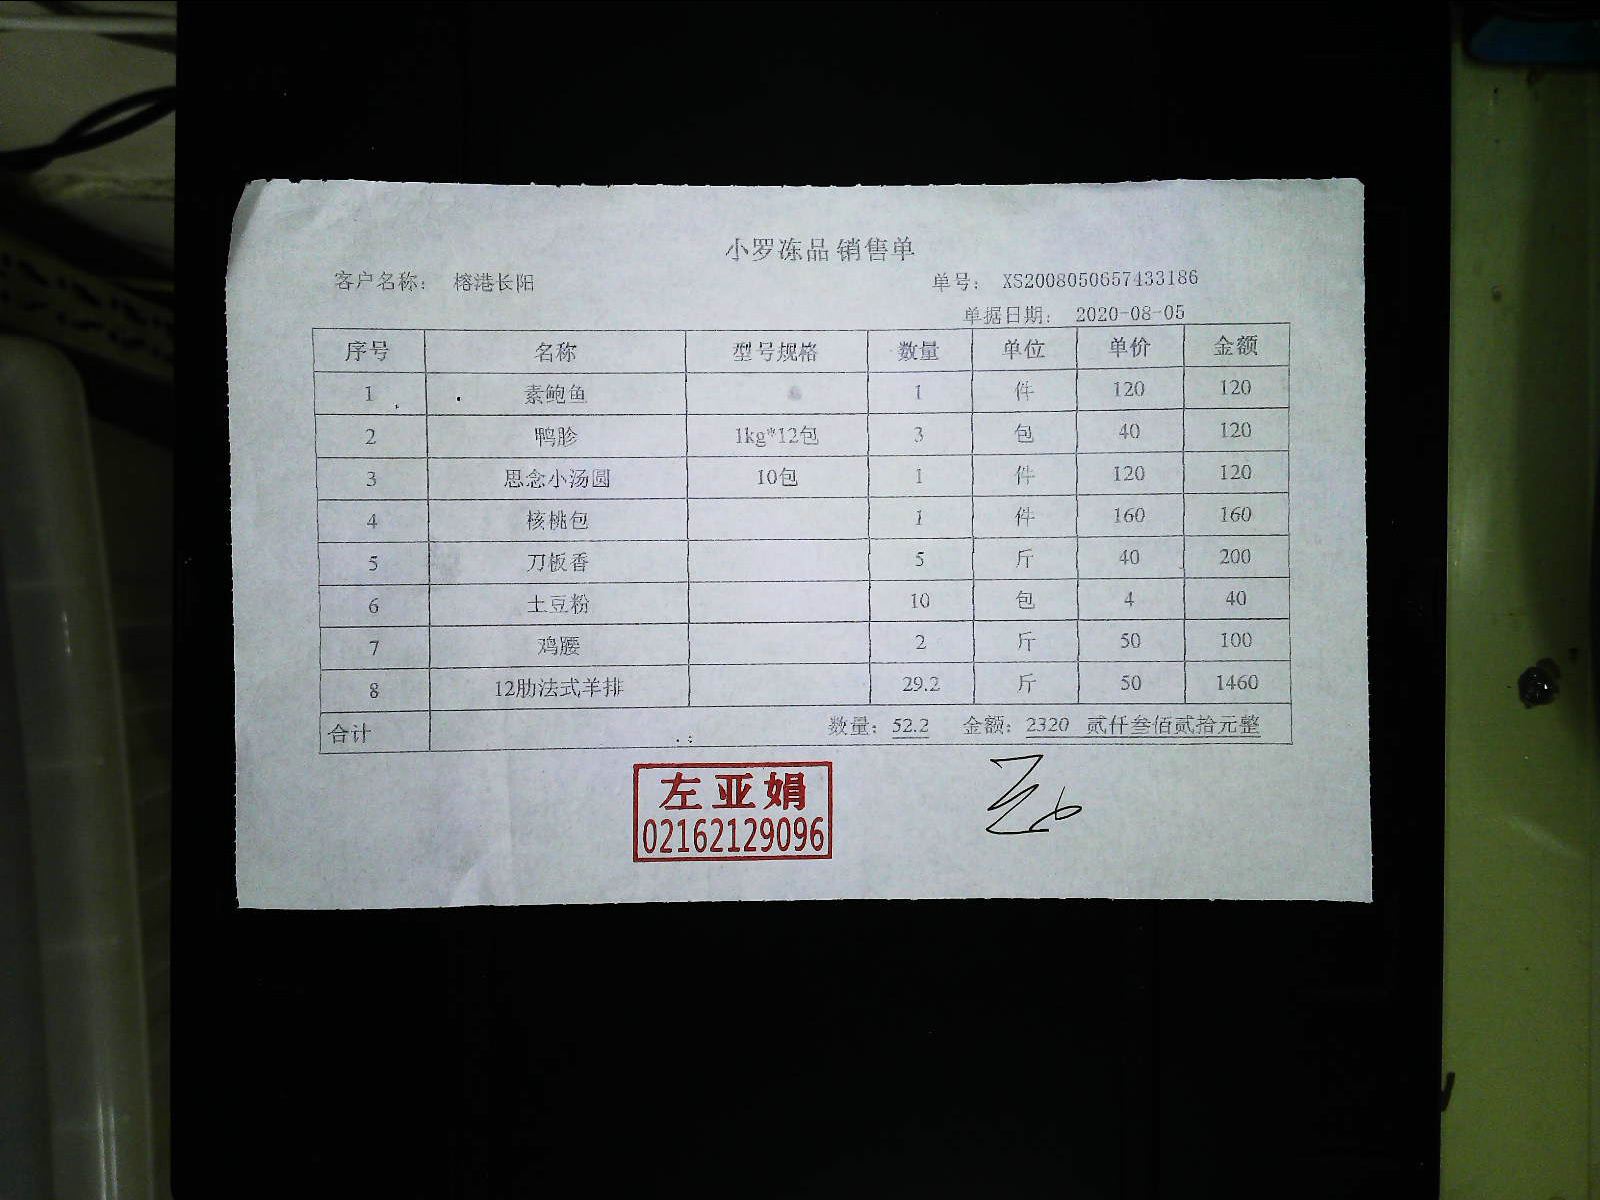 小罗冻品 销售单
客户名称： 榕港长阳 单号： XS2008050657433186
单据日期： 2020-08-05
序号 名称 型号规格 数量 单位 单价 金额
1 素鲍鱼 1 件 120 120
2 鸭胗 1kg*12包 3 包 40 120
3 思念小汤圆 10包 1 件 120 120
4 核桃包 1 件 160 160
5 刀板香 5 斤 40 200
6 土豆粉 10 包 4 40
7 鸡腰 2 斤 50 100
8 12肋法式羊排 29.2 斤 50 1460
合计 数量：52.2 金额：2320 贰仟叁佰贰拾元整
左亚娟
02162129096